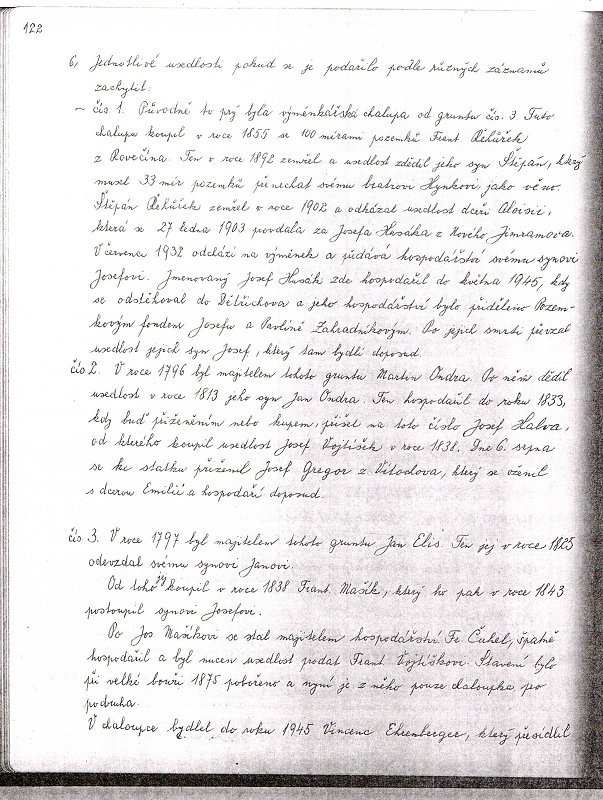 122
6, Jednotlivé usedlosti pokud se je podařilo podle různých záznamů
zachytil:
– čís 1. Původně to prý byla výměnkářská chalupa od gruntu čís. 3. Tuto
chalupu koupil v roce 1855 se 100 mírami pozemků Frant. Řehůřek
z Rovečína. Ten v roce 1892 zemřel a usedlost zdědil jeho syn Štěpán, který
musel 33 mír pozemků přenechat svému bratrovi Hynkovi, jako věno.
Štěpán Řehůřek zemřel v roce 1902 a odkázal usedlost dceři Aloisii,
která se 27 ledna 1903 provdala za Josefa Husáka z Nového Jimramova.
V červenci 1932 odchází na výměnek a předává hospodářství svému synovi
Josefovi. Jmenovaný Josef Husák zde hospodařil do května 1945, kdy
se odstěhoval do Dětřichova a jeho hospodářství bylo přiděleno Pozem-
kovým fondem Josefu a Pavlíně Zahradníkovým. Po jejich smrti převzal
usedlost jejich syn Josef, který tam bydlí doposud.
čís 2. V roce 1796 byl majitelem tohoto gruntu Martin Ondra. Po něm dědil
usedlost v roce 1813 jeho syn Jan Ondra. Ten hospodařil do roku 1833,
kdy buď přiženěním nebo kupem, přišel na toto číslo Josef Halva,
od kterého koupil usedlost Josef Vojtíšek v roce 1838. Dne 6. srpna
se ke statku přiženil Josef Gregor z Vítochova, který se oženil
s dcerou Emilií a hospodaří doposud.
čís 3. V roce 1797 byl majitelem tohoto gruntu Jan Elis. Ten jej v roce 1825
odevzdal svému synovi Janovi.
Od toho jej koupil v roce 1838 Frant. Mašík, který ho pak v roce 1843
postoupil synovi Josefovi.
Po Jos Mašíkovi se stal majitelem hospodářství Fr. Čuhel, špatně
hospodařil a byl nucen usedlost prodat Frant. Vojtíškovi. Stavení bylo
při velké bouři 1875 pobořeno a nyní je z něho pouze chaloupka pro
podruha.
V chaloupce bydlel do roku 1945 Vincenc Ehrenberger, který přesídlil